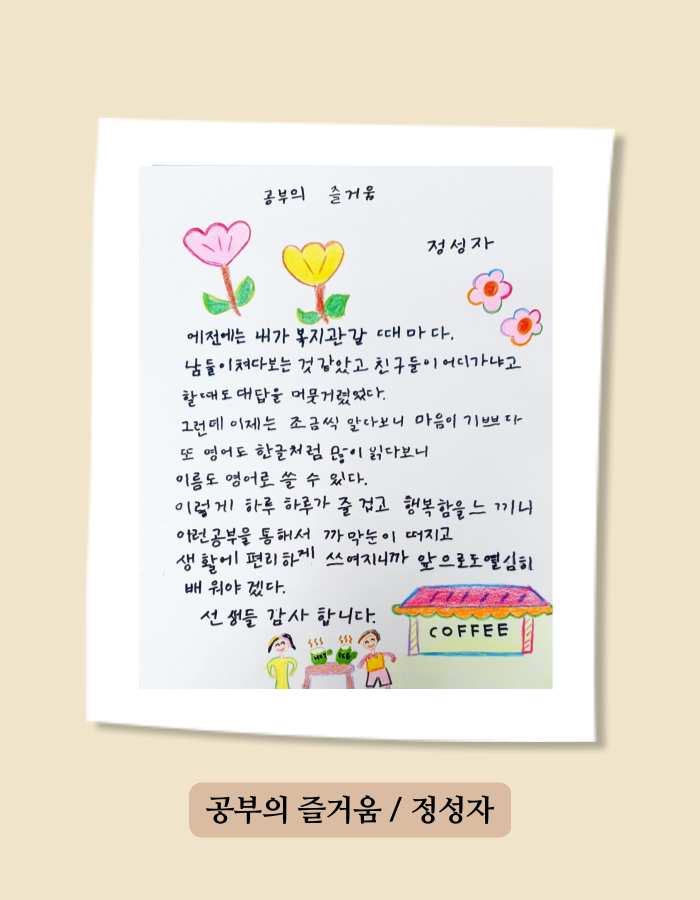 공부의 즐거움
정성자
예전에는 내가 복지관갈 때마다.
남들이쳐다보는것같았고 친구들이어디가냐고
할때도대답을 머뭇거렸었다.
그런데 이제는 조금씩 알다보니 마음이 기쁘다
또 영어도 한글처럼 많이 읽다보니
이름도 영어로 쓸 수 있다.
이렇게 하루 하루가 즐겁고 행복함을느끼니
이런공부을 통해서 까막눈이 떠지고
생활에 편리하게 쓰여지니까 앞으로도열심히
배워야겠다.
선생들 감사합니다.
COFFEE
HOT ICE
공부의 즐거움 / 정성자